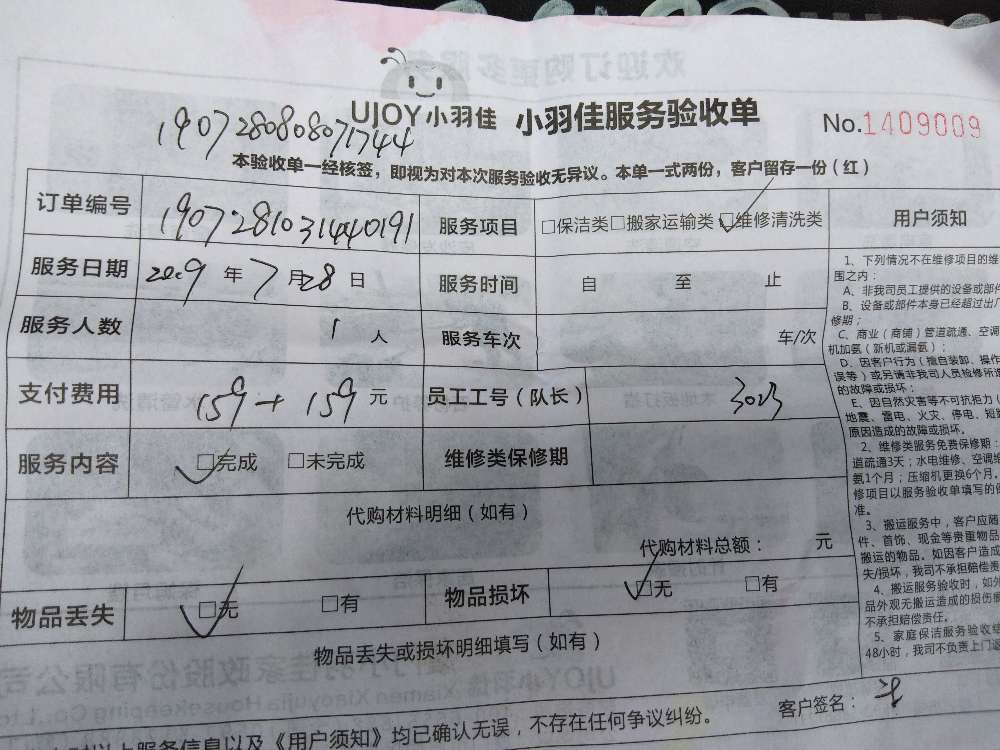 UJOY小羽佳 小羽佳服务验收单
No.1409009
190728080807 1744
本验收单一经核签，即视为对本次服务验收无异议。本单一式两份，客户留存一份（红）
订单编号 19072810314440191 服务项目 □保洁类□搬家运输类□维修清洗类
服务日期 2019年7月28日 服务时间 自 至 止
服务人数 1人 服务车次 车/次
支付费用 159+159元 员工工号（队长）
服务内容 □完成 □未完成 维修类保修期
代购材料明细（如有）
代购材料总额： 元
物品丢失 □无 □有 物品损坏 □无 □有
物品丢失或损坏明细填写（如有）
客户签名：
以上服务信息以及《用户须知》均已确认无误，不存在任何争议纠纷。
用户须知
1、下列情况不在维修项目的维
围之内：
A、非我司员工提供的设备或部件
B、设备或部件本身已经超过出厂
修期；
C、商业（商铺）管道疏通、空调
机加氨（新机或漏氨）；
D、因客户行为（擅自装卸、操作
误等）或另请非我司人员检修所造
的故障或损坏；
E、因自然灾害等不可抗拒力（
地震、雷电、火灾、停电、短路
原因造成的故障或损坏。
2、维修类服务免费保修期：
道疏通3天；水电维修、空调维
氨1个月；压缩机更换6个月。
修项目以服务验收单填写的保
准。
3、搬运服务中，客户应随
件、首饰、现金等贵重物品
搬运的物品。如因客户造成
失/损坏，我司不承担赔偿责
4、搬运服务验收时，如外
品外观无搬运造成的损伤痕
不承担赔偿责任。
5、家庭保洁服务验收结
48小时，我司不负责上门返